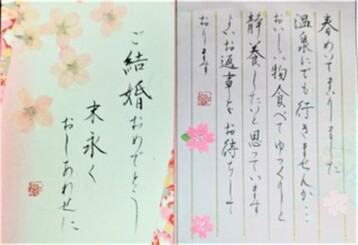 ご結婚おめでとう
末永く
おしあわせに
春めいてまいりました
温泉にでも行きませんか…
おいしい物食べてゆっくりと
静養したいと思っています
よいお返事をお待ちして
おります